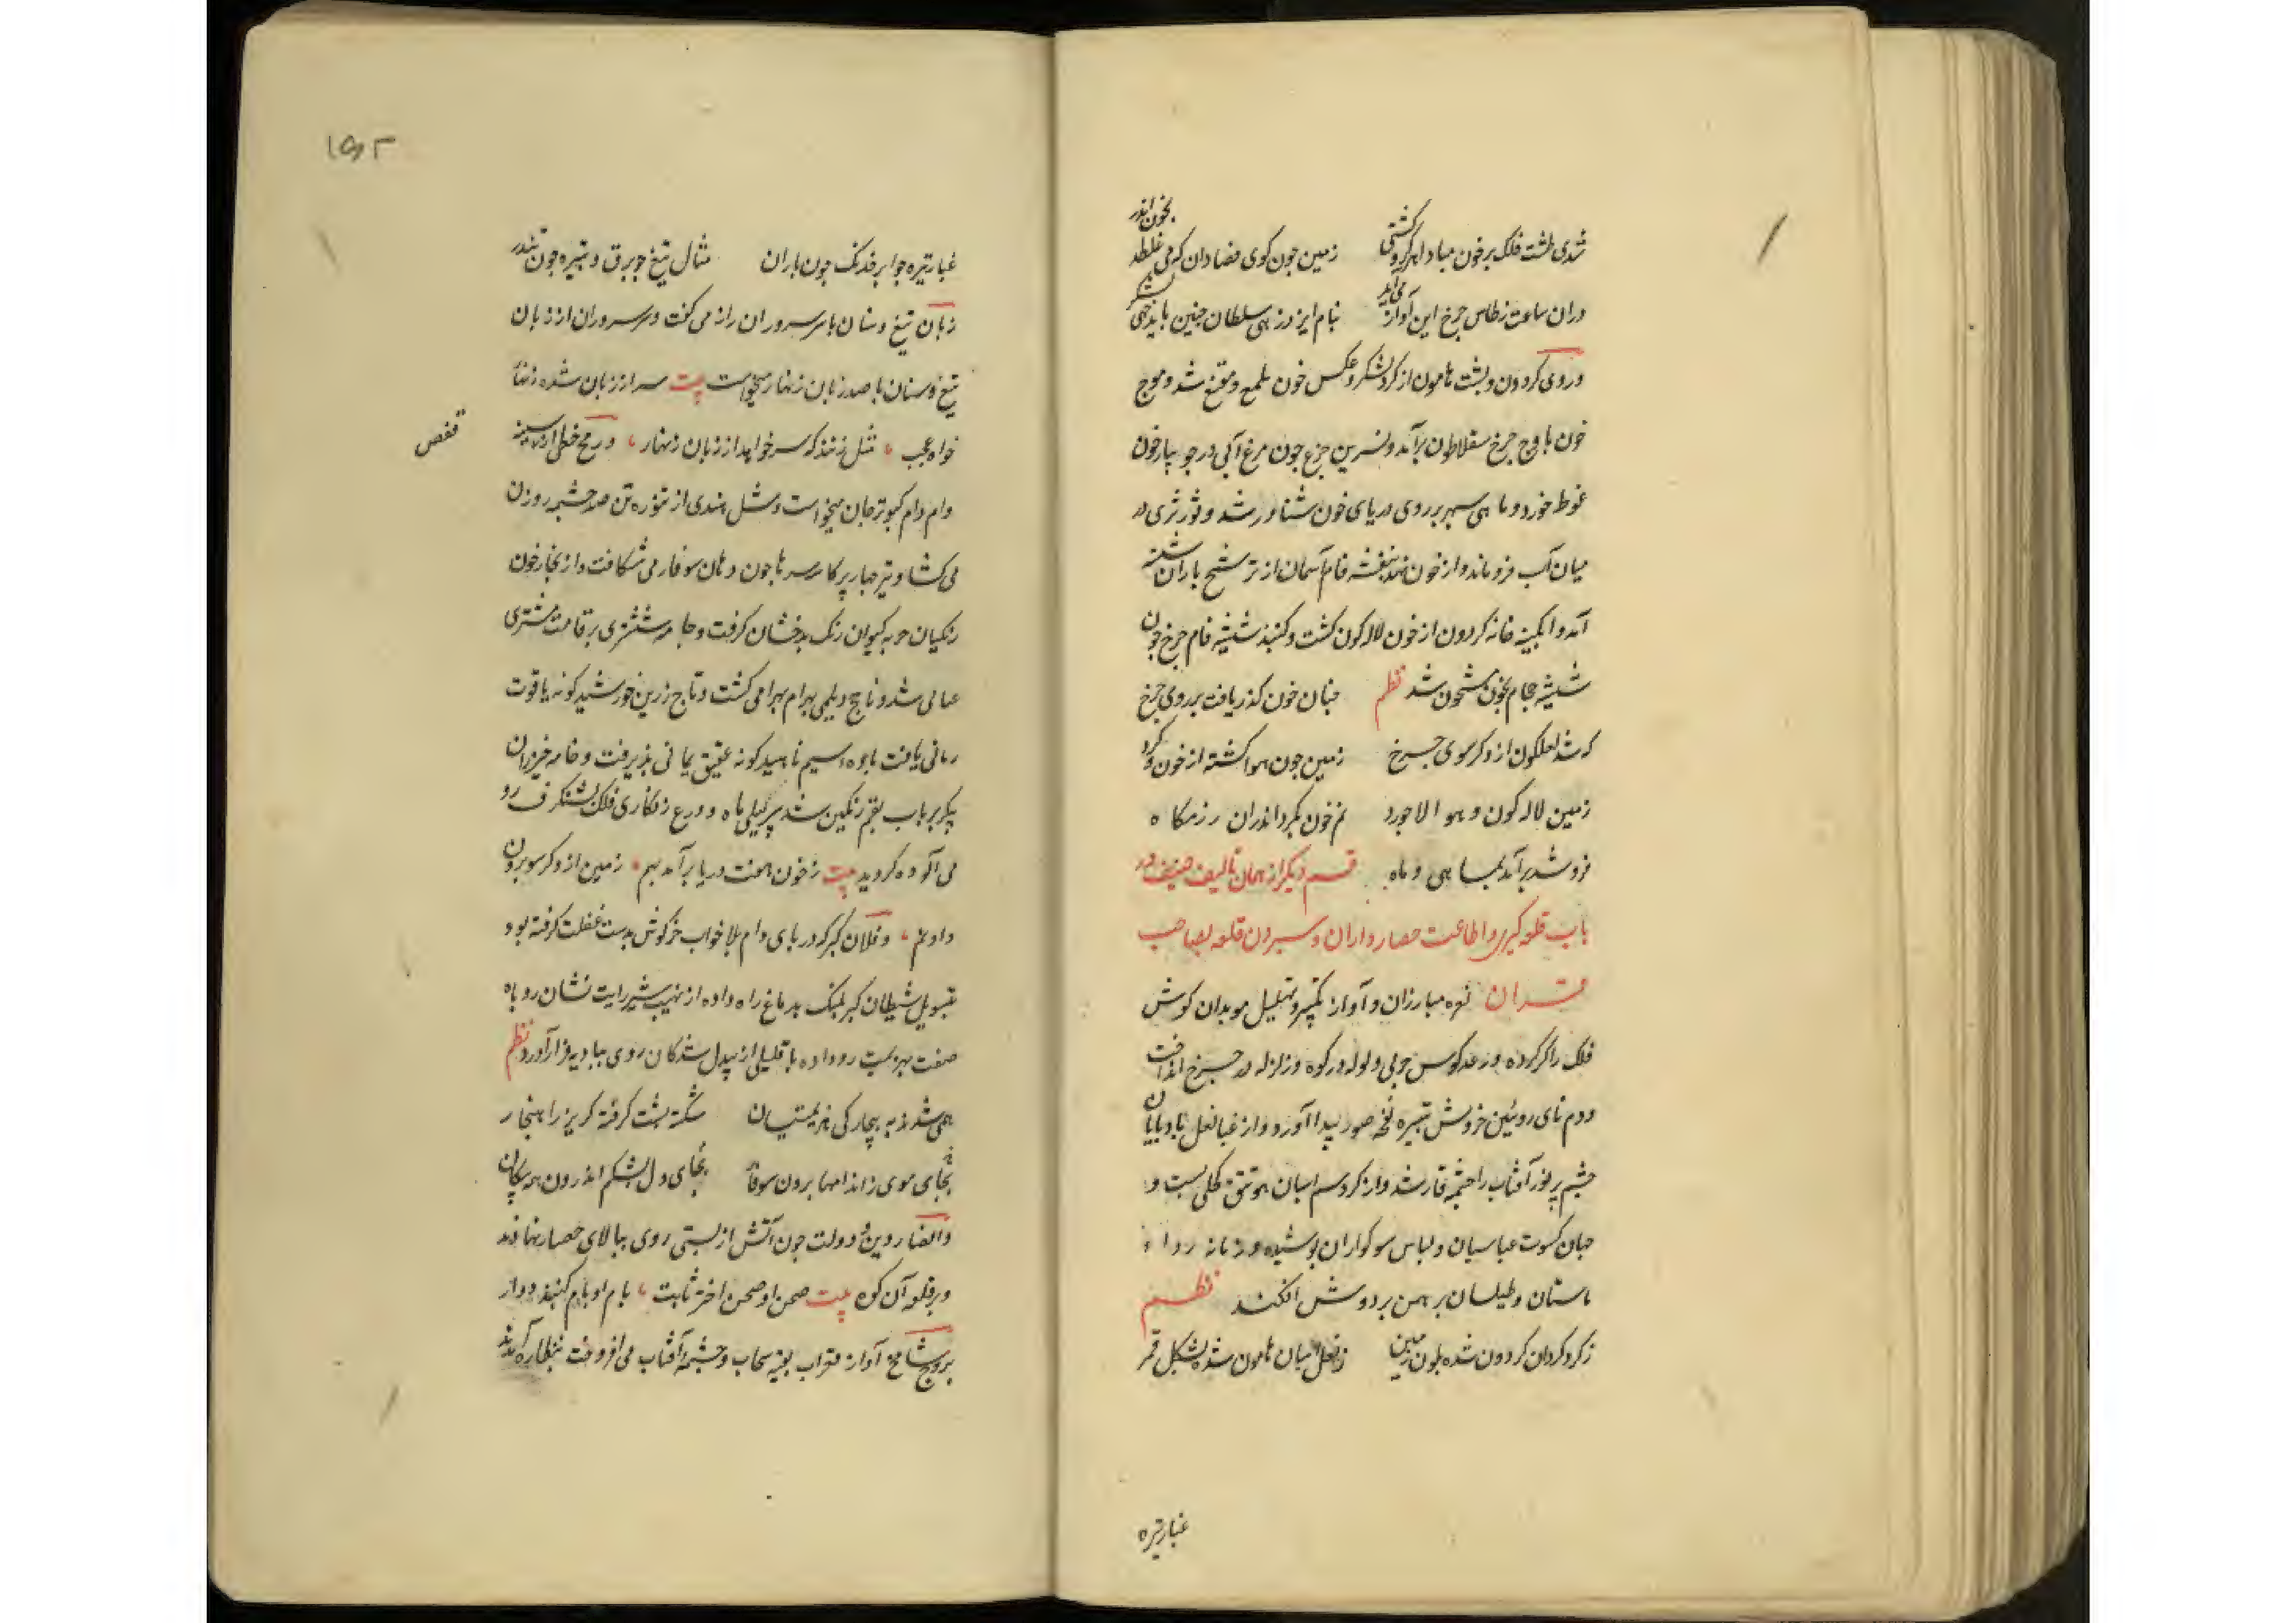 شدی طشت فلک پر خون مبادا هر گروکشتی زمین جون کوی فصادان کرمی غلطد بخون اندر
دران ساعت ز طاس جرخ این آواز می آید بنام ایزد زهی سلطان جنین باید جهی لشکر
و روی کردون و پشت هامون از کرد لشکر و عکس خون ملمع و مقنع شد و موج
خون باوج جرخ سقلاطون برآمد و نسرین جرخ جون مرغ آبی در جویبار خون
غوط خورد و ماهی سپهر بر روی دریای خون شناور شد و ثور ثری در
میان آب فرو ماند و از خون بنفشه فام آسمان از ترشح باران شسته
آمد و آبکینه خانه کردون از خون لاله کون کشت و کنبد شیشه فام جرخ جون
شیشه حجام بخون مشحون شد نظم جنان خون کذر یافت بر روی جرخ
که شد لعلکون از دکر سوی جرخ زمین جون هوا کشته از خون و کرد
زمین لاله کون و هوا لاجورد نم خون بکرد اندران رزمکاه
فرو شد برآمد بماهی و ماه قسم دیکر از همان تالیف صنیف در
باب قلعه کیری و اطاعت حصار داران و سپردن قلعه بصاحب
قران نعره مبارزان و آواز تکبیر و تهلیل موبدان کوش
فلک را کر کرده و رعد کوس حربی ولوله در کوه و زلزله در جرخ انداخت
و دم نای روئین خروش تبیره نفخه صور پیدا آورد و از غبار نعل بادپایان
جشم پر نور آفتاب را جشمه قار شد و از کرد سم اسبان هوا تتق کحلی بست و
جهان کسوت عباسیان و لباس سوکواران پوشیده و زمانه رداء
باستان و طیلسان برهمن بر دوش افکند نظم
ز کرد کردان کردون شده بلون زمین ز نعل اسبان هامون شده بشکل قمر
غبار تیره
۱۵۳
غبار تیره جو ابر خدنک جون باران مثال تیغ جو برق و تبیره جون تندر
زبان تیغ و سنان با سر سروران راز می کفت و سر سروران از زبان
تیغ و سنان با صد زبان زنهار میخواست بیت سر از زبان شده زنها
خواه عجب مثل زنند که سر خواهد از زبان زنهار و رمح خطی از سینه
قفص
وام دام کبوتر جان میخواست و مثل هندی از تنوره تن صد جشمه روزن
می کشاد و تیر جهار پر کاسه سرها جون دهان سوفار می شکافت و از بخار خون
رنکیان جبه کیوان رنک بدخشان کرفت و جامه ششتری بر قامت مشتری
عبائی شد و ناجخ دیلمی بهرام بهرامی کشت و تاج زرین خورشید کونه یاقوت
رمانی یافت سیم ناهید کونه عقیق یمانی پذیرفت و خامه خیزران
پیکر تیر باب بقم رنکین شد پر نیلی ماه و درع زنکاری فلک بشنکرف رو
می آلوده کردید بیت ز خون هفت دریا برآمد بهم زمین از دکر سو برون
داد نم و فلان کبر که در پای دام بلا خواب خرکوش بدست غفلت کرفته بود
بتسویل شیطان کبر پلنک بدماغ راه داده از نهیب شیر رایت نشان روباه
صفت بهزیمت رو داده با قلیلی از بیدل شدکان روی ببادیه فرار آورد نظم
همی شدند به بیچارکی هزیمتیان شکسته پشت کرفته کریز را هنجار
بجای موی ز اندامها برون سوفار بجای دل بشکم اندرون همه پیکان
و انصار دین و دولت جون آتش از پستی روی ببالای حصار نهادند
و بر قلعه آن کوه بیت صحن او صحن اختر ثابت بام او بام کنبد دوار
بروج شامخ آواز عقاب سحاب و جشمه آفتاب می افروخت بنظاره آمدند